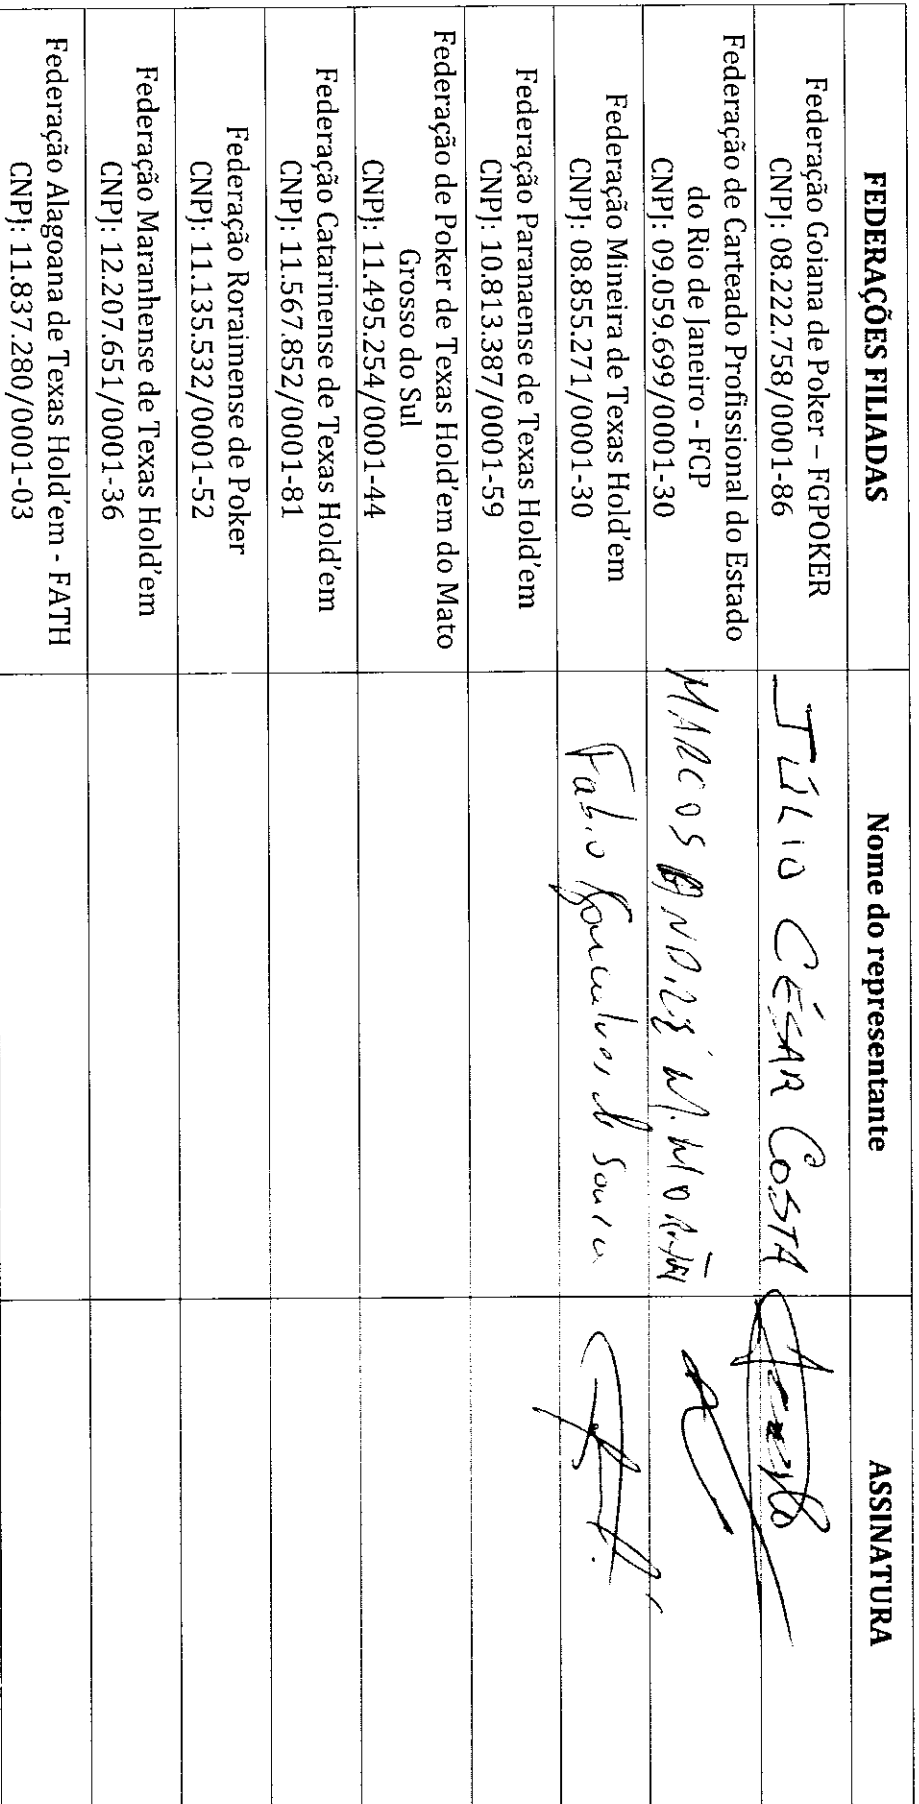 FEDERAÇÕES FILIADAS
Nome do representante
ASSINATURA
Federação Goiana de Poker – FGPOKER
CNPJ: 08.222.758/0001-86
JÚLIO CÉSAR COSTA
Federação de Carteado Profissional do Estado
do Rio de Janeiro - FCP
CNPJ: 09.059.699/0001-30
MARCOS ANDRÉ M.
Federação Mineira de Texas Hold'em
CNPJ: 08.855.271/0001-30
Fabio Goncalves de Souza
Federação Paranaense de Texas Hold'em
CNPJ: 10.813.387/0001-59
Federação de Poker de Texas Hold'em do Mato
Grosso do Sul
CNPJ: 11.495.254/0001-44
Federação Catarinense de Texas Hold'em
CNPJ: 11.567.852/0001-81
Federação Roraimense de Poker
CNPJ: 11.135.532/0001-52
Federação Maranhense de Texas Hold'em
CNPJ: 12.207.651/0001-36
Federação Alagoana de Texas Hold'em - FATH
CNPJ: 11.837.280/0001-03